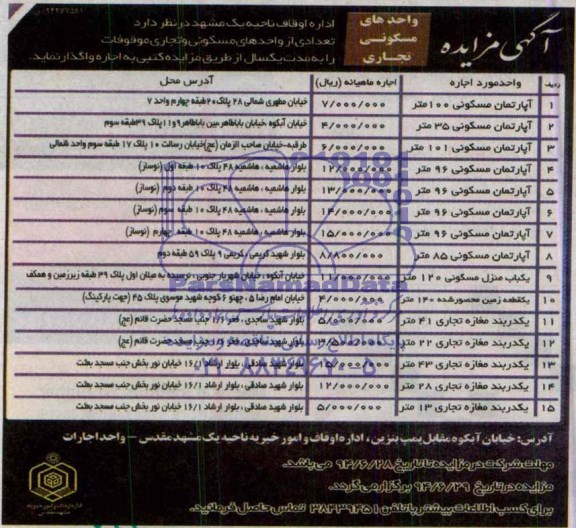 آگهی مزایده
واحد های
مسکونی
تجاری
اداره اوقاف ناحیه یک مشهد در نظر دارد
تعدادی از واحدهای مسکونی و تجاری موقوفات
را به مدت یکسال از طریق مزایده کتبی به اجاره واگذار نماید.
ردیف واحد مورد اجاره اجاره ماهیانه (ریال) آدرس محل
۱ آپارتمان مسکونی ۱۰۰ متر ۷/۰۰۰/۰۰۰ خیابان مطهری شمالی ۲۸ پلاک ۲۰ طبقه چهارم واحد ۷
۲ آپارتمان مسکونی ۳۵ متر ۴/۰۰۰/۰۰۰ خیابان آبکوه، خیابان باباطاهر بین باباطاهر ۹ و ۱۱ پلاک ۳۹ طبقه سوم
۳ آپارتمان مسکونی ۱۰۱ متر ۶/۰۰۰/۰۰۰ طرقبه-خیابان صاحب الزمان (عج) خیابان رسالت ۱۰ پلاک ۱۷ طبقه سوم واحد شمالی
۴ آپارتمان مسکونی ۹۶ متر ۱۲/۰۰۰/۰۰۰ بلوار هاشمیه، هاشمیه ۴۸ پلاک ۱۰ طبقه اول (نوساز)
۵ آپارتمان مسکونی ۹۶ متر ۱۳/۰۰۰/۰۰۰ بلوار هاشمیه، هاشمیه ۴۸ پلاک ۱۰ طبقه دوم (نوساز)
۶ آپارتمان مسکونی ۹۶ متر ۱۴/۰۰۰/۰۰۰ بلوار هاشمیه، هاشمیه ۴۸ پلاک ۱۰ طبقه سوم (نوساز)
۷ آپارتمان مسکونی ۹۶ متر ۱۵/۰۰۰/۰۰۰ بلوار هاشمیه، هاشمیه ۴۸ پلاک ۱۰ طبقه چهارم (نوساز)
۸ آپارتمان مسکونی ۸۵ متر ۸/۸۰۰/۰۰۰ بلوار شهید کریمی، کریمی ۹ پلاک ۵۹ طبقه دوم
۹ یکباب منزل مسکونی ۱۲۰ متر ۱۱/۰۰۰/۰۰۰ خیابان آبکوه، خیابان شهریار جنوبی، نرسیده به میلان اول پلاک ۳۹ طبقه زیرزمین و همکف
۱۰ یکقطعه زمین محصور شده ۱۴۰ متر ۴/۰۰۰/۰۰۰ خیابان امام رضا ۵، جهنو ۶ کوچه شهید موسوی پلاک ۲۵ (جهت پارکینگ)
۱۱ یکدربند مغازه تجاری ۴۱ متر ۵/۰۰۰/۰۰۰ بلوار شهید ساجدی، جنب مسجد حضرت قائم (عج)
۱۲ یکدربند مغازه تجاری ۲۲ متر بلوار شهید ساجدی، جنب مسجد حضرت قائم (عج)
۱۳ یکدربند مغازه تجاری ۴۳ متر ۱۵/۰۰۰/۰۰۰ بلوار شهید صادقی، بلوار ارشاد ۱۶/۱ خیابان نور بخش جنب مسجد بعثت
۱۴ یکدربند مغازه تجاری ۲۸ متر ۱۲/۰۰۰/۰۰۰ بلوار شهید صادقی، بلوار ارشاد ۱۶/۱ خیابان نور بخش جنب مسجد بعثت
۱۵ یکدربند مغازه تجاری ۱۳ متر ۵/۰۰۰/۰۰۰ بلوار شهید صادقی، بلوار ارشاد ۱۶/۱ خیابان نور بخش جنب مسجد بعثت
ParsNamadData
آدرس: خیابان آبکوه مقابل پمپ بنزین، اداره اوقاف و امور خیریه ناحیه یک مشهد مقدس - واحد اجارات
مهلت شرکت در مزایده تا تاریخ ۹۴/۶/۲۸ می باشد.
مزایده در تاریخ ۹۴/۶/۲۹ برگزار می گردد.
برای کسب اطلاعات بیشتر با تلفن ۳۸۴۳۹۴۵۱ تماس حاصل فرمائید.